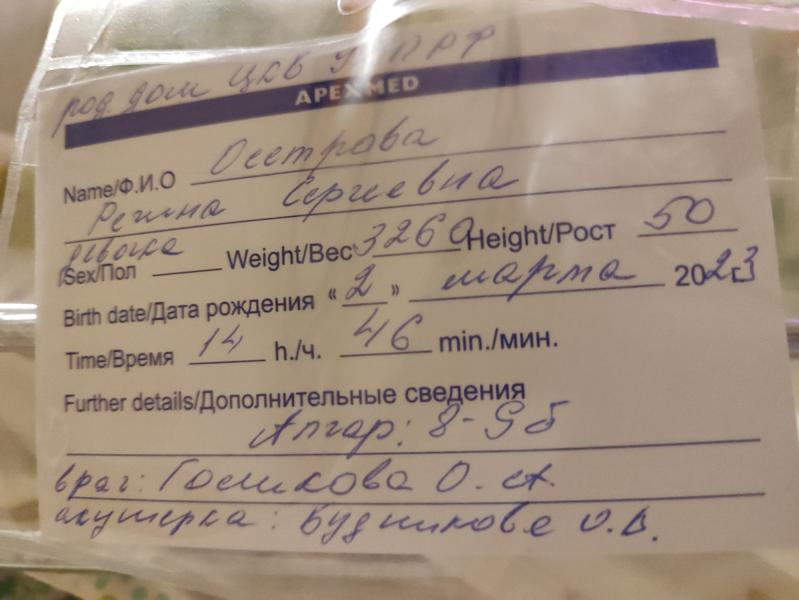 род. дом ЦКБ УДПРФ
APEXMED
Name/Ф.И.О Осетрова
Регина Сергеевна
девочка
Sex/Пол Weight/Вес 3260 Height/Рост 50
Birth date/Дата рождения «2» марта 2023
Time/Время 14 h./ч. 46 min./мин.
Further details/Дополнительные сведения
Апгар: 8-9 б
врач: Голикова О. А.
акушерка: Будникова О.В.